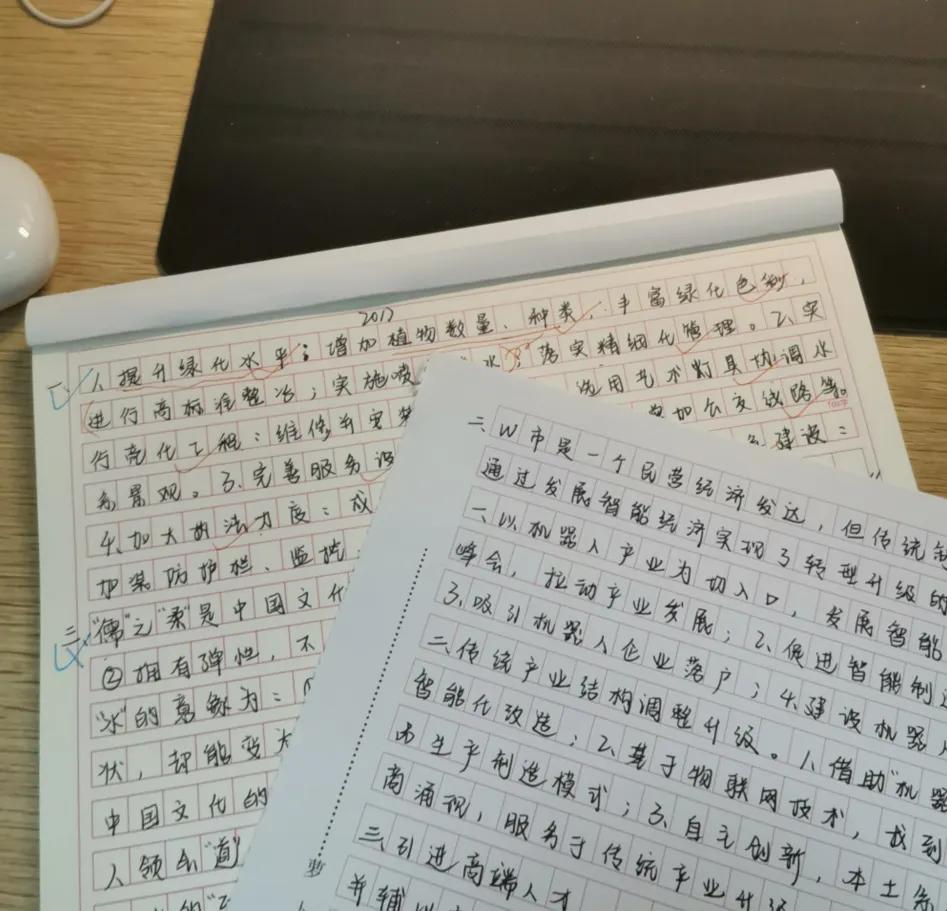 2017
一、1.提升绿化水平：增加植物数量、种类，丰富绿化色彩，
进行高标准整治；实施喷 水；落实精细化管理。2.实
行亮化工程：维修并安装 选用艺术灯具协调水
系景观。3.完善服务设 增加公交线路等。
4.加大执法力度：成 建设：
加装防护栏、监控
三、"儒"之"柔"是中国文化
②拥有弹性，不
"水"的喜
状，却能变
中国文化的
人领会"道"
二、W市是一个民营经济发达，但传统
通过发展智能经济实现了转型升级的
一、以机器人产业为切入口，发展智能
峰会，拉动产业发展；2.促进智能制
3.吸引机器人企业落户；4.建设机器
二、传统产业结构调整升级。1.借助"机器
智能化改造；2.基于物联网技术，找到
由生产制造模式；3.自主创新，本土
商涌现，服务于传统产业升级
三、引进高端人才
并辅